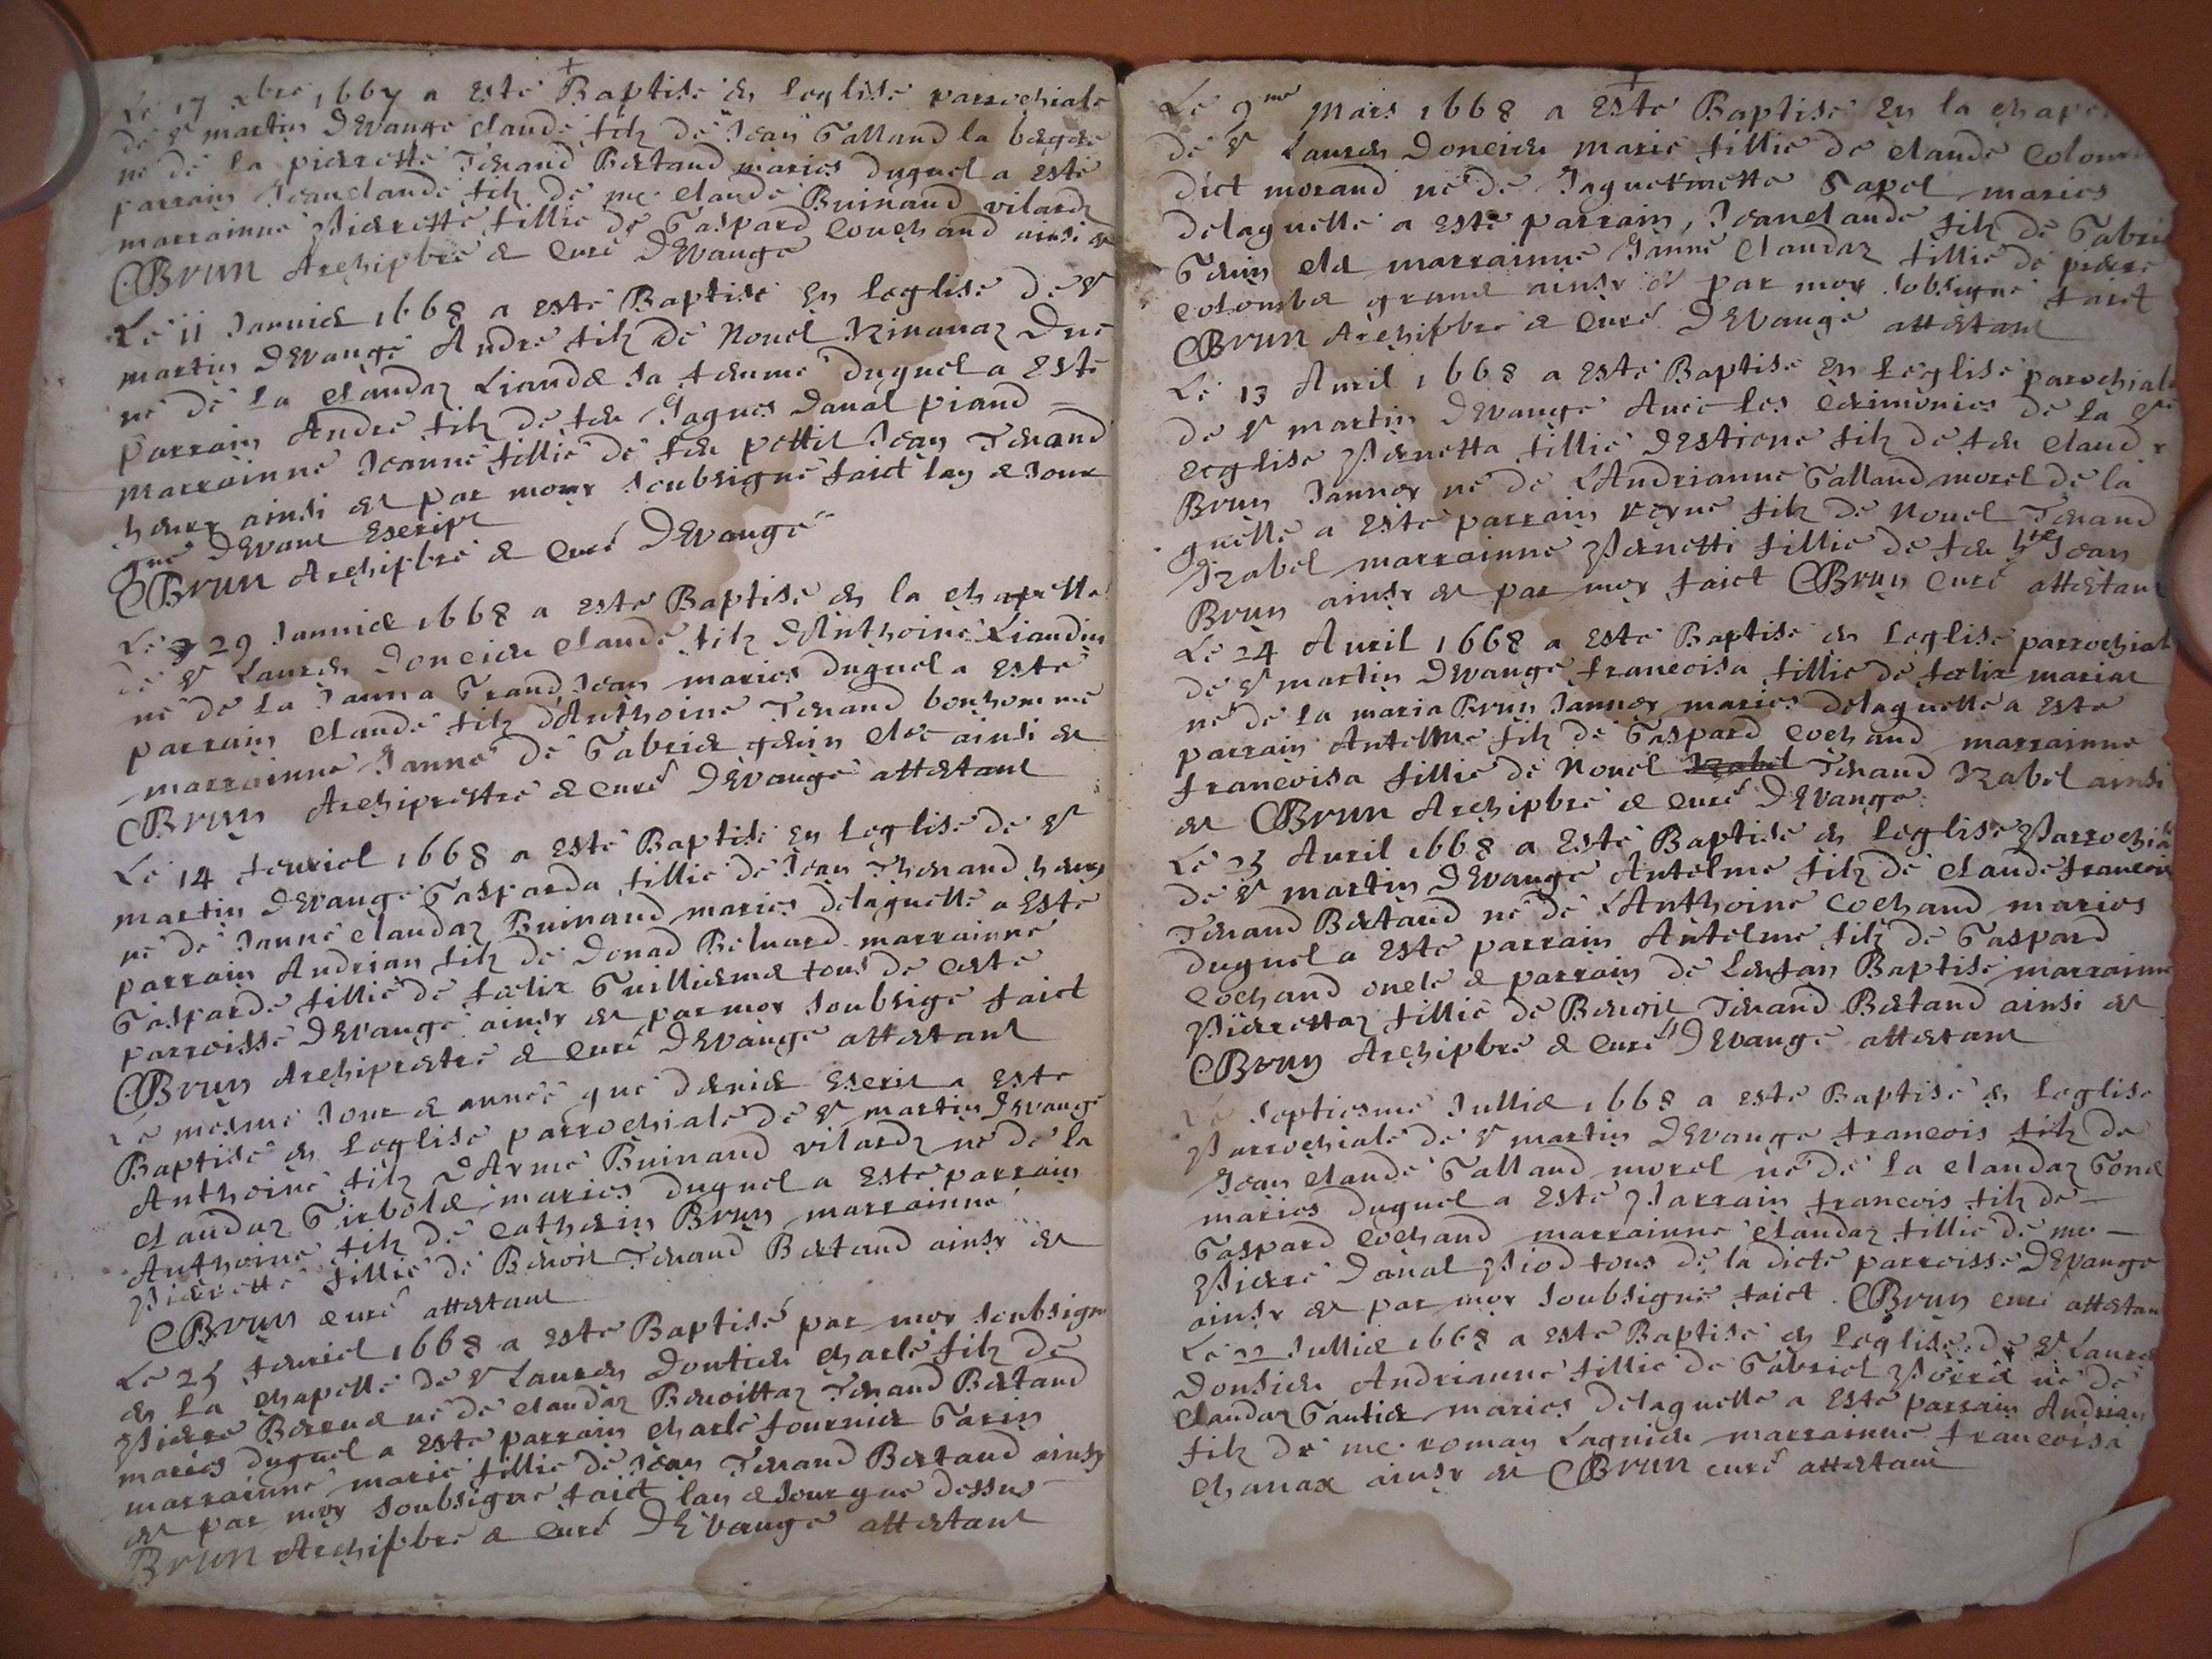 Le 17 xbre 1667 a esté Baptisé en leglise parrochiale
de st martin Devange claude filz de Jean Galland la bergere
ne de la pierrette Tenand Bertand maries duquel a esté
parrain Jeanclaude filz de me claude Buinand vilardz
marrainne Pierrette fillie de Gaspard Cochand ainsi est
CBrun Archipbre & Curé DEvange
Le 11 Januier 1668 a esté Baptisé en leglise de st
martin Devange Andre filz de Nouel
ne de la claudaz Liaudet sa femme duquel a esté
parrain Andre filz de feu Jaques Danal piaud
Marrainne Jeanne fillie de feu pettit Jean Tenand
ainsi est par moy soubsigne faict lan & Jour
que Devant escript
CBrun Archipbre & Curé DEvange
Le 29 Januier 1668 a esté Baptisé en la chapelle
de st Laurens Doncieu claude filz dAnthoine Liaudin
ne de la Janna Grand Jean maries duquel a esté
parrain claude filz dAnthoine Tenand bonhomme
marrainne Janne de Gabriel ainsi est
CBrun Archiprettre & Curé DEvange attestant
Le 14 feuriel 1668 a esté Baptisé en leglise de st
martin Devange Gasparda fillie de Jean Thenand
ne de Janne claudaz Buinand maries delaquelle a Esté
parrain Andrian filz de Donad Beluard marrainne
Gasparde fillie de foelix Guillermet tous de ceste
parroisse DEvange ainsy est par moy soubsige faict
CBrun Archiprestre & Curé DEvange attestant
Le mesme Jour & année que dernier Escrit a Esté
Baptisé en leglise parrochiale de st martin Devange
Anthoine filz dAyme Buinand vilardz ne de la
claudaz Girbolet maries duquel a Esté parrain
Anthoine filz de Catherin Brun marrainne
Pierrette fillie de Benoit Tenand Bertand ainsy est
CBrun curé attestant
Le 25 feuriel 1668 a esté Baptisé par moy soubsigne
en La chapelle de st Laurens Dontieu charle filz de
Pierre ne de claudaz Benoittaz Tenand Bertand
maries duquel a Esté parrain charle fournier Garin
marrainne marie fillie de Jean Tenand Bertand ainsy
est par moy soubsigne faict lan & Jour que dessus
Brun Archipbre & Curé DEvange attestant
Le 9me Mars 1668 a Esté Baptisé En la
de st Laurens Doncieu marie fillie de claude
dict morand ne de Jaquemette Gapel maries
delaquelle a esté parrain, Jeanclaude filz de
marrainne Janne Claudaz fillie de pierre
Colombet grand ainsy est par moy sobsigne faict
CBrun Archipbre & Curé DEvange attestant
Le 13 Auril 1668 a esté Baptisé En leglise
de st martin Devange Auec les Cerimonies de la ste
ecglise Pernetta fillie DEstiene filz de feu
Brun Jannoy ne de lAndrianne Galland morel de la
quelle a esté parrain filz de Nouel Tenand
Izabel marrainne Pernette fillie de feu Jean
Brun ainsy est par moy faict CBrun Curé attestant
Le 24 Auril 1668 a esté Baptisé en leglise
de st martin Devange francoisa fillie de foelix mariat
ne de la maria Brun Jannoy maries delaquelle a Esté
parrain Antelme filz de Gaspard Cochand marrainne
francoisa fillie de Nouel Izabel Tenand Izabel ainsi
est CBrun Archipbre & Curé DEvange.
Le 25 Auril 1668 a Esté Baptisé en leglise
de st martin Devange Antelme filz de claude francois
Tenand Bertand ne de lAnthoine Cochand maries
duquel a Esté parrain Antelme filz de Gaspard
Cochand oncle & parrain de lenfan Baptisé marrainne
Pierrettaz fillie de Benoit Tenand Bertand ainsi est
CBrun Archipbre & Curé DEvange attestant
Le septiesme Jullier 1668 a esté Baptisé en leglise
Parrochiale de st martin Devange francois filz de
Jean claude Galland morel ne de la claudaz
maries duquel a Esté Parrain francois filz de
Gaspard Cochand marrainne claudaz fillie de me
Pierre Danal Piod tous de la dicte parroisse DEvange
ainsy est par moy soubsigne faict. CBrun curé
Le 22 Jullier 1668 a esté Baptisé en leglise de st
Donsieu Andrianne fillie de Gabriel ne de
claudaz Gautier maries delaquelle a Esté parrain Andrian
filz de me. roman Lagnieu marrainne francoisa
ainsy est CBrun curé attestant